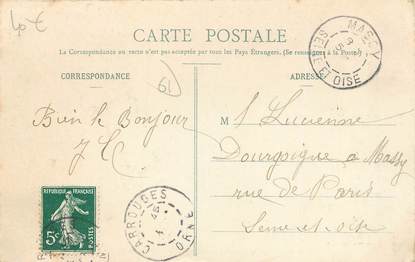 40 €
CARTE POSTALE
La Correspondance au recto n'est pas acceptée par tous les Pays Étrangers. (Se renseigner à la Poste)
CORRESPONDANCE
ADRESSE
61
MASSY
SEINE ET OISE
Bien le Bonjour
M Lucienne
à Massy
rue de Paris
Seine et Oise
RÉPUBLIQUE FRANÇAISE
5c
POSTES
CARROUGES
ORNE